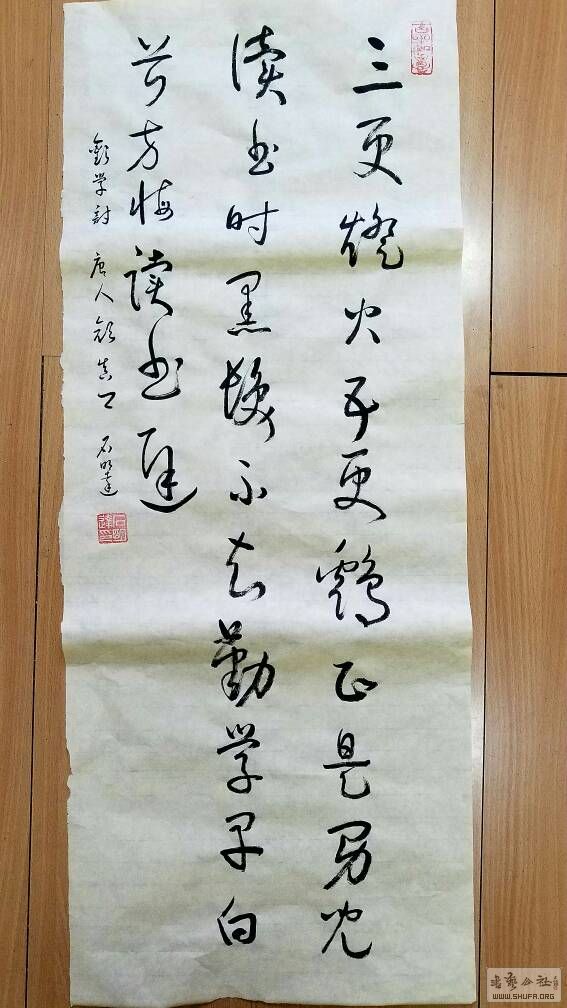 三更燈火五更鷄正是男兒
读书时黑髮不知勤学早白
首方悔读书遲
勸学詩 唐人颜真卿 石明達
书艺公社
WWW.SHUFA.ORG